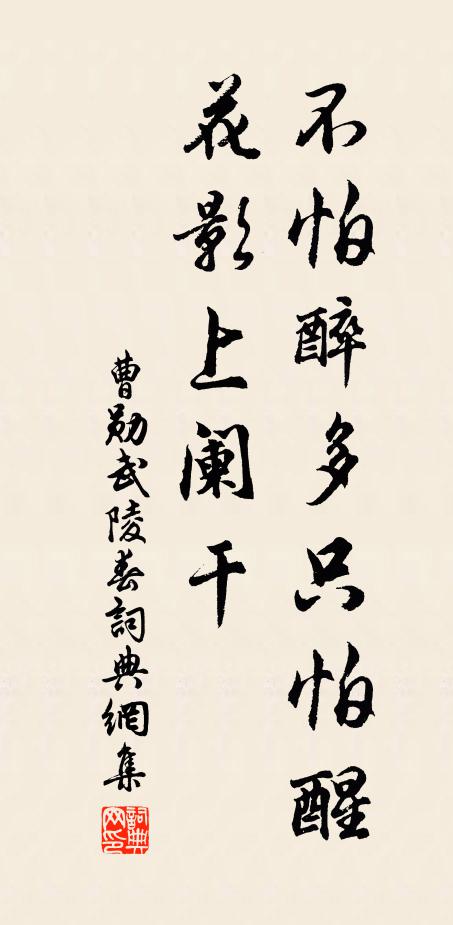 不怕醉多只怕醒
花影上阑干
曹勋武陵春詞典網集
詞典网印